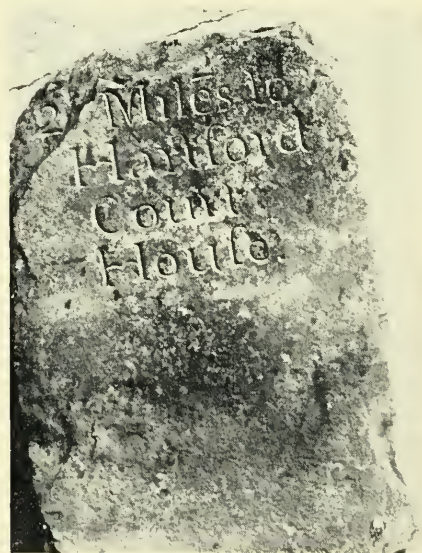 2 Miles to
Hartford
Court
Houſe.